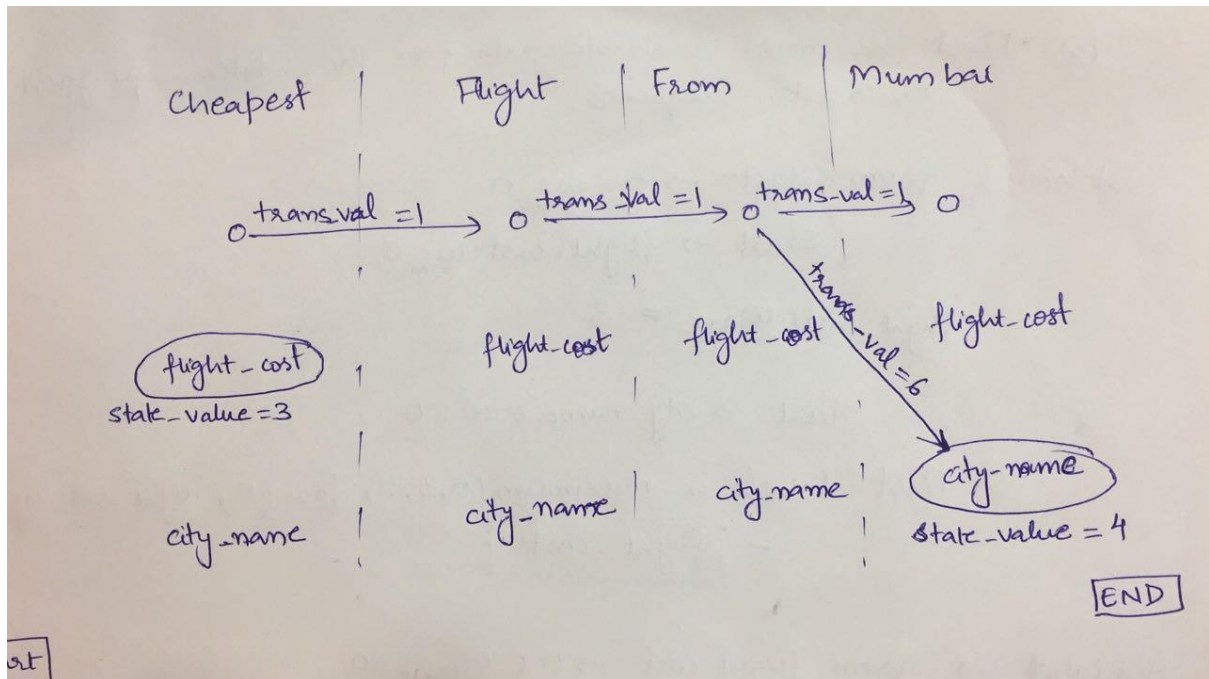 Cheapest Flight From Mumbai
trans_val =1 trans_val =1 trans_val=1
O O O O
trans_val=6
flight_cost flight_cost flight_cost flight_cost
state_value =3
city_name city_name city_name city_name
state_value = 4
END
rt